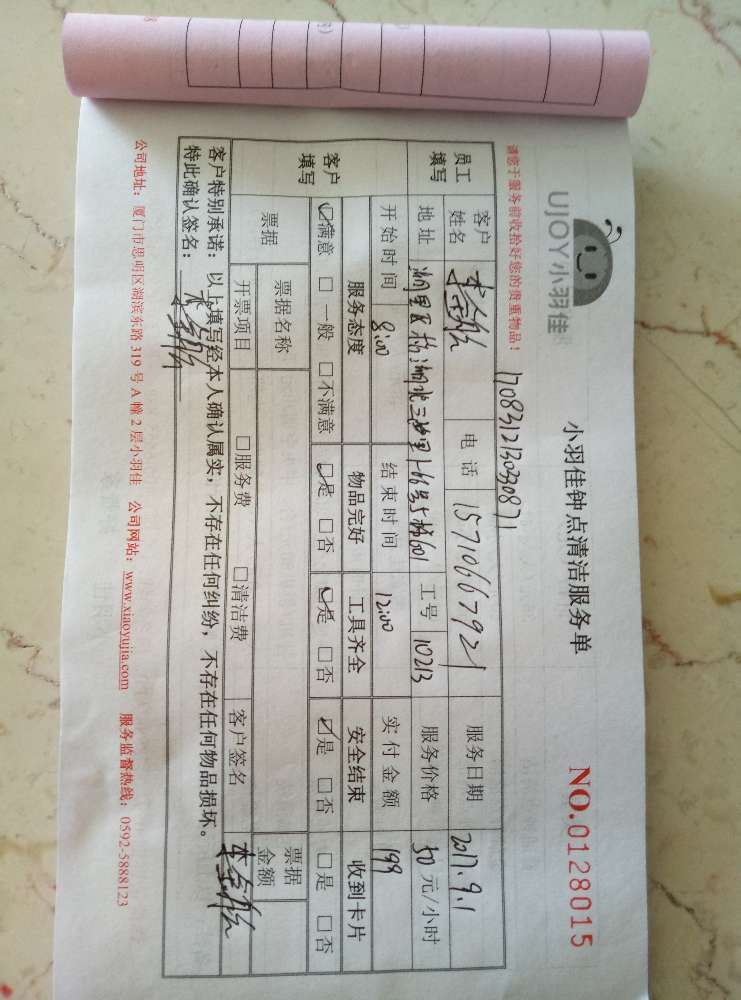 UJOY小羽佳
小羽佳钟点清洁服务单
NO.0128015
请您于服务前收拾好您的贵重物品！
1708312130330871
员工填写
客户姓名
电话 15710667921
服务日期 2017.9.1
地址
工号 10213
服务价格 50元/小时
开始时间 8:00
结束时间 12:00
实付金额 199
客户填写
服务态度 物品完好 工具齐全 安全结束 收到卡片
☑满意 □一般 □不满意 ☑是 □否 ☑是 □否 ☑是 □否 □是 □否
票据
票据名称
票据金额
开票项目 □服务费 □清洁费 客户签名
客户特别承诺：以上填写经本人确认属实，不存在任何纠纷，不存在任何物品损坏。
特此确认签名：
公司地址：厦门市思明区湖滨东路319号A幢2层小羽佳 公司网站：www.xiaoyujia.com 服务监督热线：0592-5888123